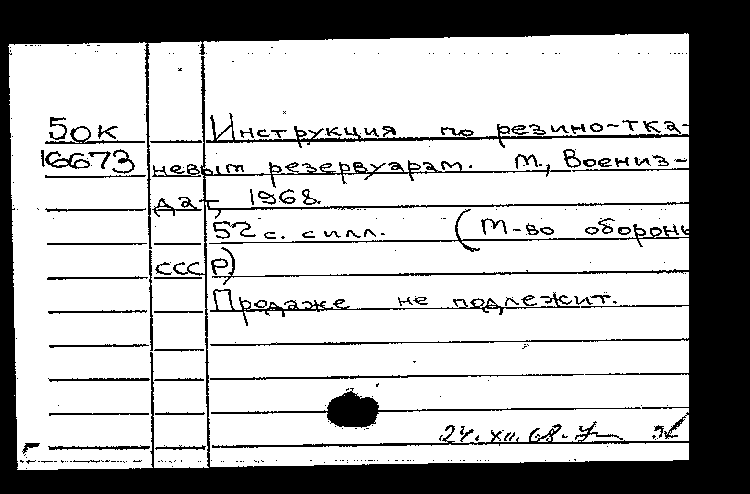 5ок
16673
Инструкция по резино-тка-
невым резервуарам. М., Воениз-
дат, 1968.
52 с. с илл. (М-во оборонь
СССР)
Продаже не подлежит.
24.XII.68.